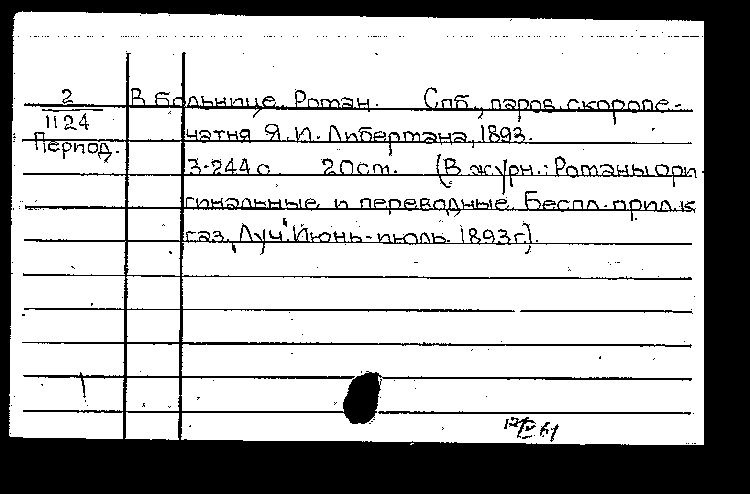 2
1124
Период.
В больнице. Роман. Спб., паров. скоропе-
чатня Я.И. Либермана, 1893.
3-244 с. 20 см. (В журн.: Романы ори-
гинальные и переводные. Беспл. прил. к
газ. "Луч". Июнь-июль. 1893 г.).
12/IV 61